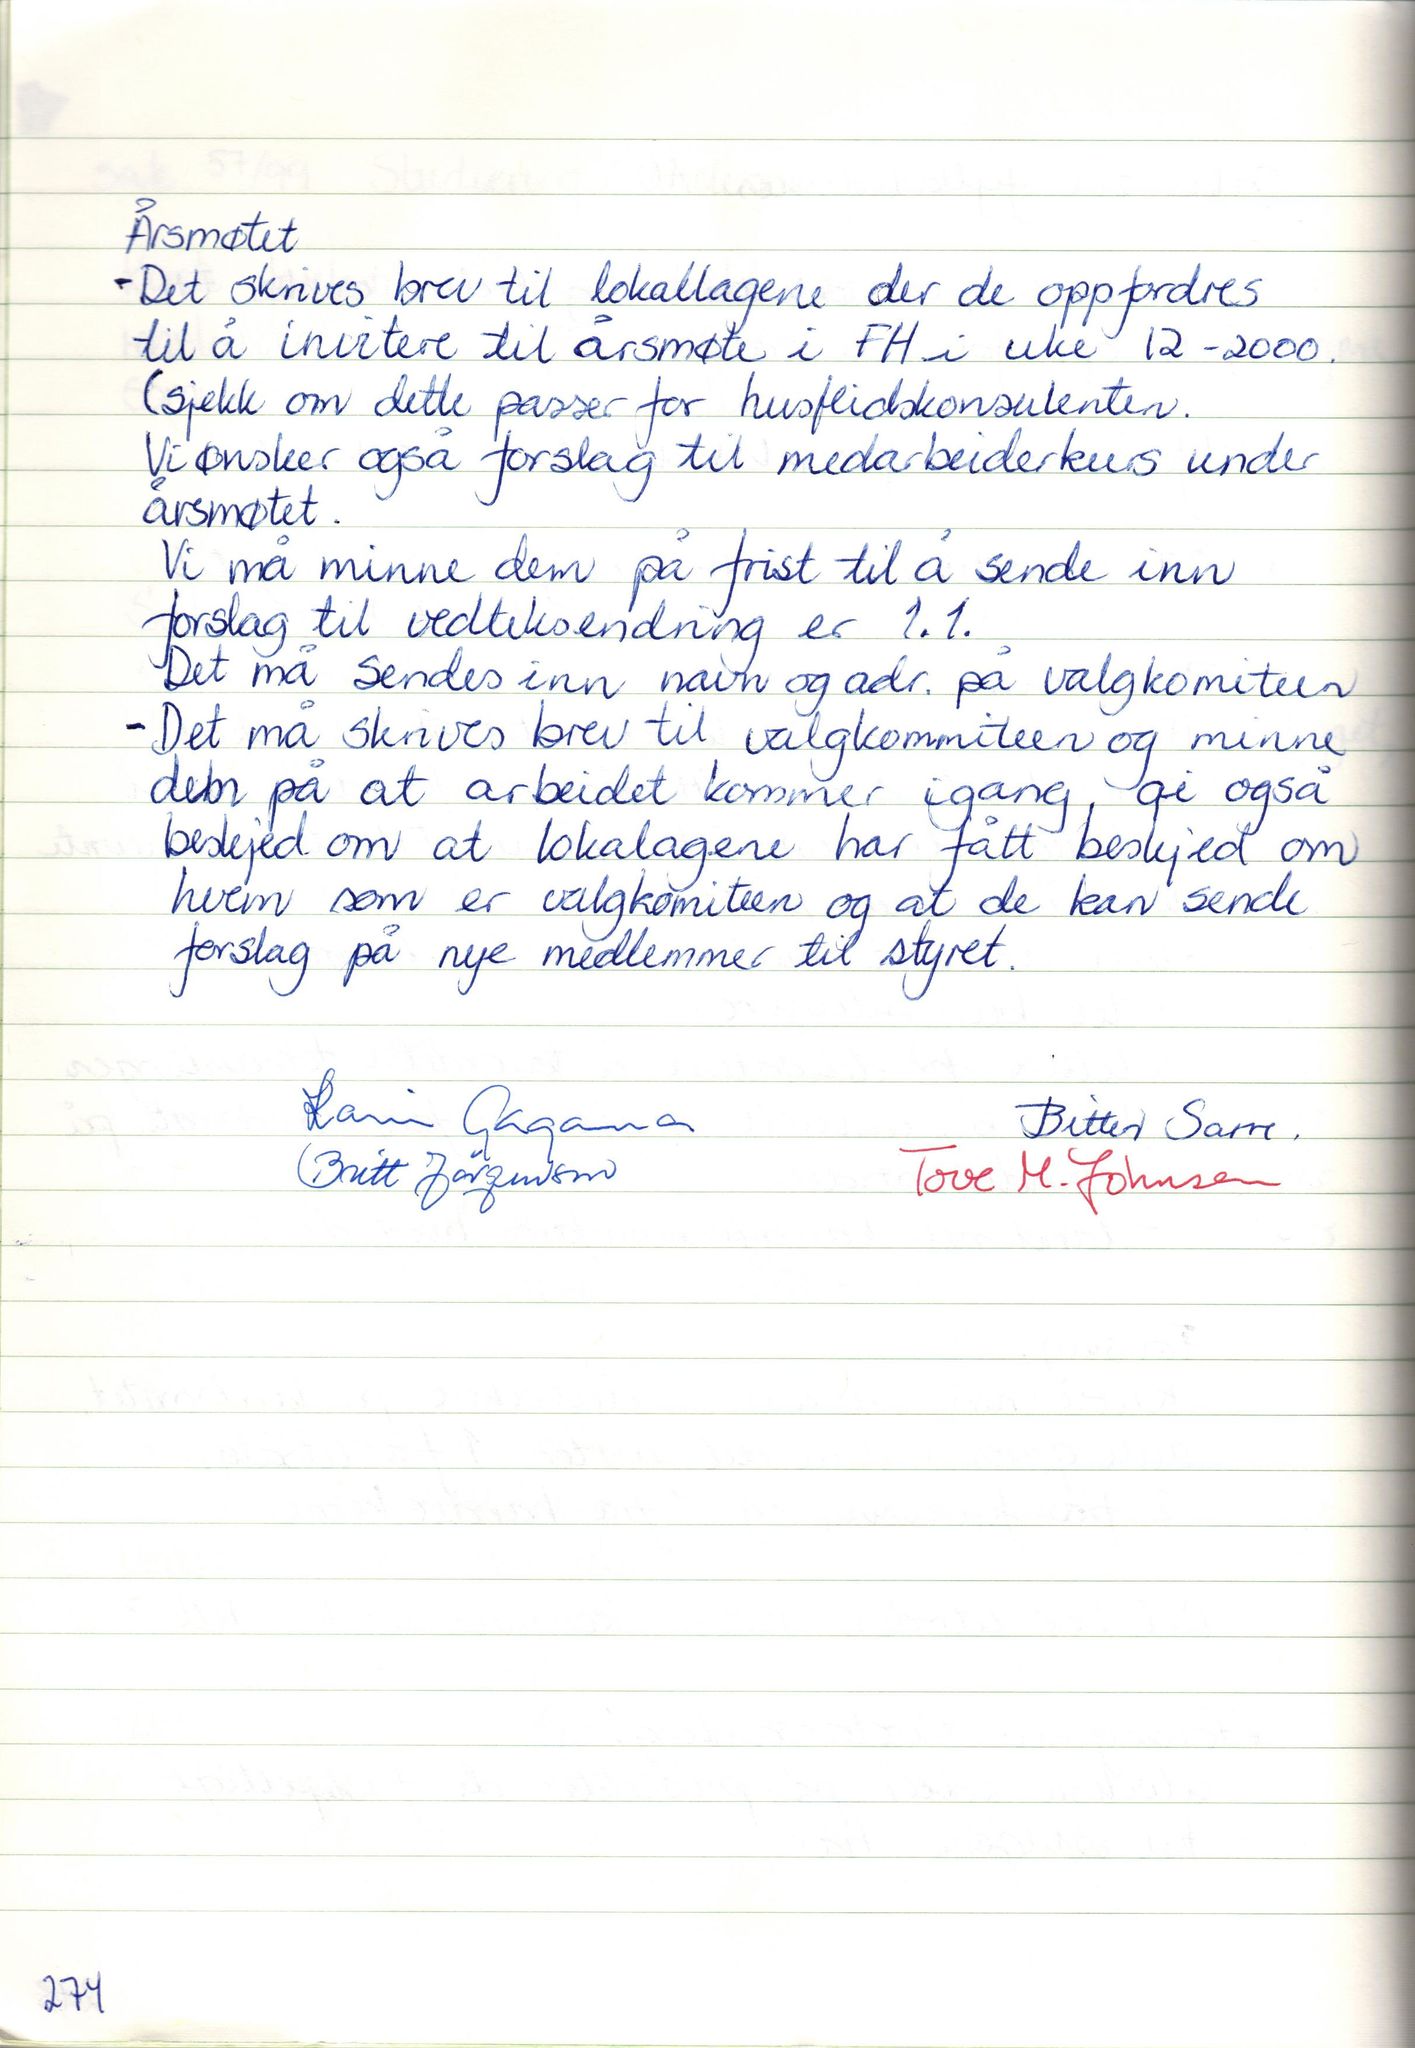 Årsmøtet
- Det skrives brev til lokallagene der de oppfordres
til å invitere til årsmøte i FH i uke 12-2000.
(sjekk om dette passer for husflidskonsulenten.
Vi ønsker også forslag til medarbeiderkurs under
årsmøtet.
Vi må minne dem på frist til å sende inn
forslag til vedteksendring er 1.1.
Det må sendes inn navn og adr. på valgkomiteen
- Det må skrives brev til valgkommiteen og minne
dem på at arbeidet kommer igang, gi også
beskjed om at lokalagene har fått beskjed om
hvem som er valgkomiteen og at de kan sende
forslag på nye medlemmer til styret.
Karin
Britt
Sarre.
Tove M. Johnsen
274